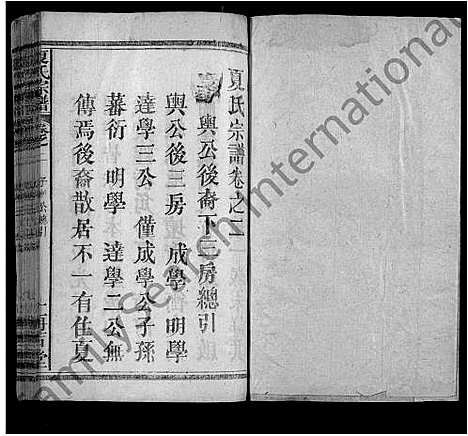 夏氏宗譜卷之二
輿公後裔下三房總引
輿公後三房 成學 明學
達學三公僅成學公子孫
蕃衍 明學 達學二公無
傳焉後裔散居不一有任夏
夏氏宗譜
FamilySearch International